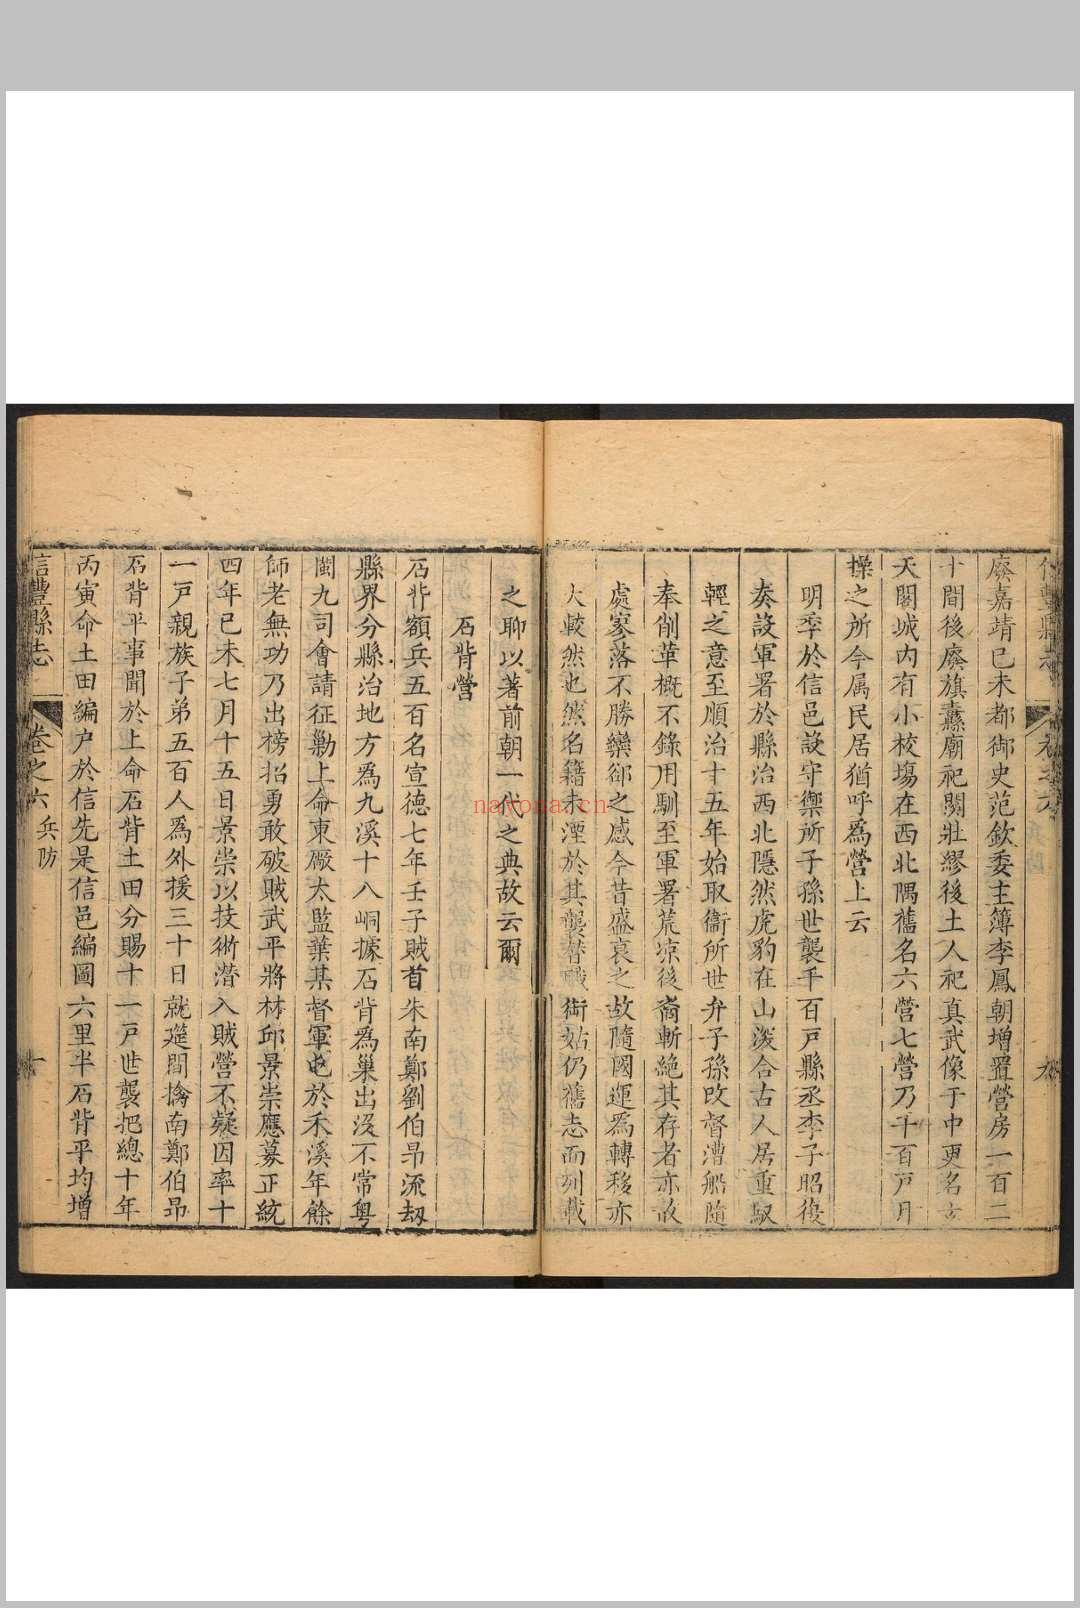 信豐縣志
卷之六
九
廢嘉靖已未都御史范欽委主簿李鳳朝增置營房一百二
十間後廢旗纛廟祀關壯繆後土人祀真武像于中更名玄
天閣城内有小校塲在西北隅舊名六營七營乃千百戸月
操之所今属民居猶呼為營上云
明季於信邑設守禦所子孫世襲千百戸縣丞李子昭復
奏設軍署於縣治西北隱然虎豹在山洨合古人居重馭
輕之意至順治十五年始取衞所世弁子孫改督漕船隨
奉削革概不錄用馴至軍署荒凉後裔斬絶其存者亦散
處寥落不勝欒郤之感今昔盛衰之故隨國運為轉移亦
大較然也然名籍未湮於其襲替職銜姑仍舊志而列載
之聊以著前朝一代之典故云爾
石背營
石背額兵五百名宣德七年壬子賊首朱南鄭劉伯昂流刼
縣界分縣治地方為九溪十八峒據石背為巢出没不常粤
閩九司會請征勦上命東厰太監葉某督軍屯於禾溪年餘
師老無功乃出榜招勇敢破賊武平將林邱景崇應募正統
四年已未七月十五日景崇以技術潛入賊營不疑因率十
一戸親族子弟五百人為外援三十日就筵間擒南鄭伯昂
石背平事聞於上命石背土田分賜十一戸世襲把總十年
丙寅命土田編户於信先是信邑編圖六里半石背平均增
信豐縣志
卷之六
兵防
十
nayona.cn